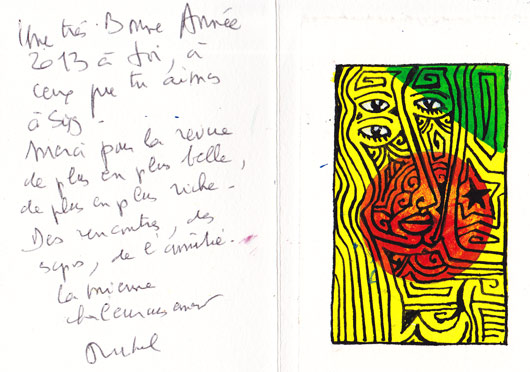 Une très Bonne Année
2013 à toi, à
ceux que tu aimes
à
Merci pour la revue
de plus en plus belle,
de plus en plus riche.
Des rencontres, des
de l'amitié.
la mienne
chaleureusement